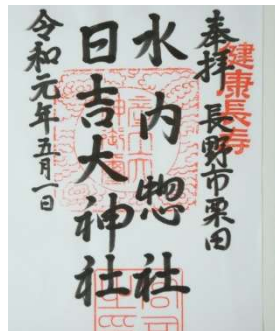 健康長寿
奉拝 長野市栗田
水内惣社
日吉大神社
令和元年五月一日